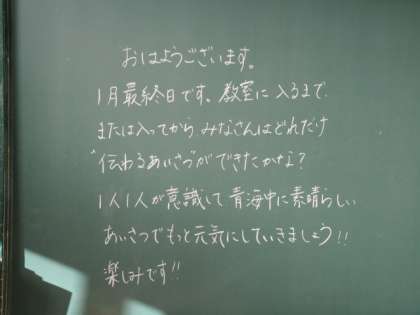 おはようございます。
1月最終日です。教室に入るまで
または入ってから みなさんはどれだけ
"伝わるあいさつ"ができたかな？
1人1人が意識して青海中に素晴らしい
あいさつでもっと元気にしていきましょう!!
楽しみです!!